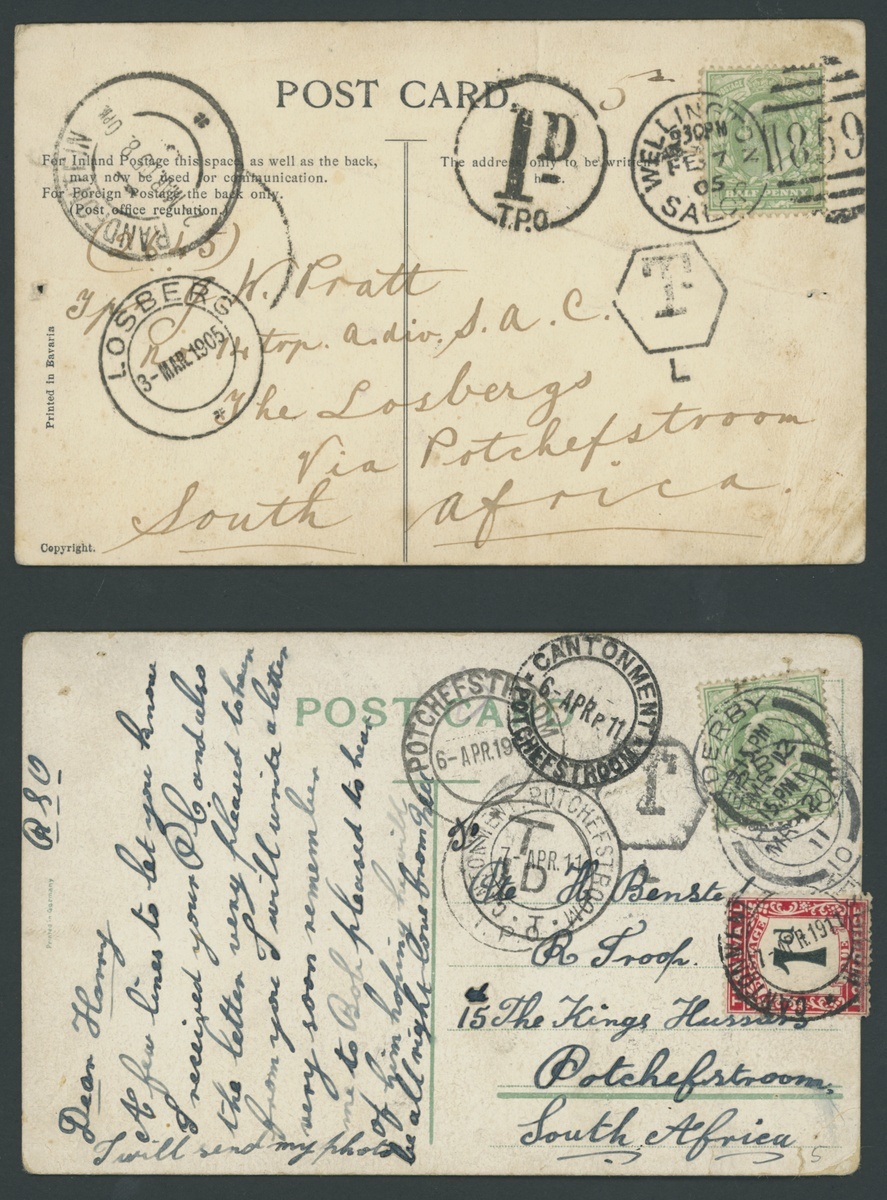 POST CARD.
For Inland Postage this space, as well as the back,
may now be used for communication.
For Foreign Postage the back only.
(Post office regulation.)
The address only to be written
here.
1D
T.P.O.
WELLINGTON
6 30PM
FE 7
05
SALOP
859
HALF PENNY
T
L
LOSBERG
3-MAR.1905
W. Pratt
A. div. S. A. C.
The Losbergs
Via Potchefstroom
South Africa.
Printed in Bavaria
Copyright.
POST CARD
POTCHEFSTROOM
6-APR.19
CANTONMENT
6-APR.P.11
POTCHEFSTROOM
T
DERBY
MR 12
11
CANTONMENT. POTCHEFSTROOM
T
7-APR.11
1D
T.P.O.
RSO
Dear Harry
A few lines to let you know
I received your P.C. and also
the letter very pleased to hear
from you I will write a letter
very soon remember
me to Bob pleased to hear
of him hoping he will
be all right love from
I will send my photo
Printed in Germany
To
H Benste
R Troop.
15 The Kings Hussars
Potchefstroom,
South Africa
POSTAGE DUE
1D
7-APR.1911
5